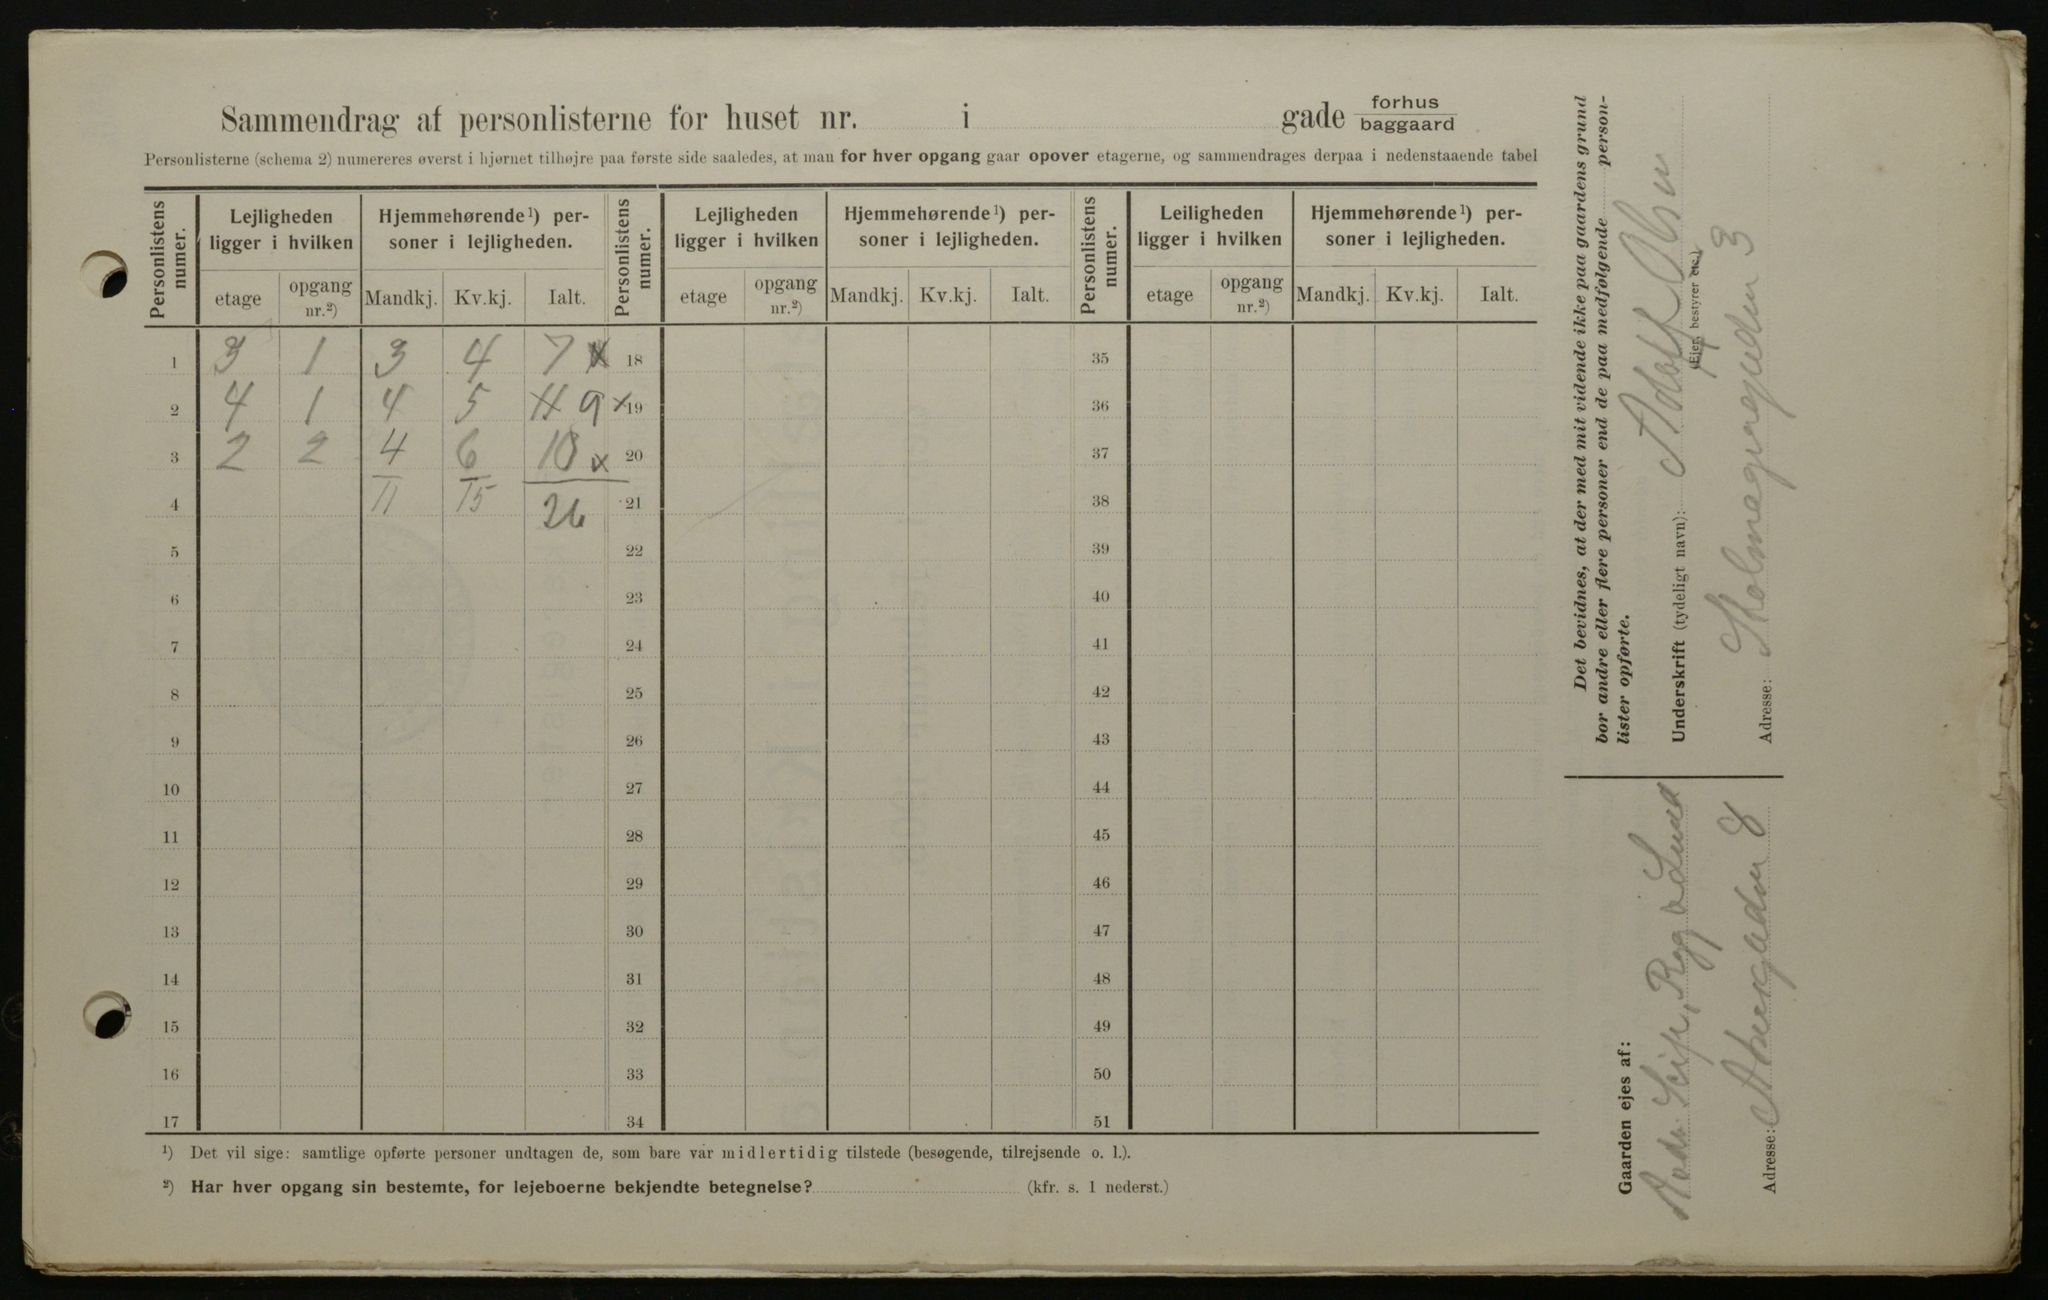 Sammendrag af personlisterne for huset nr. i gade forhus baggaard
Personlisterne (schema 2) numereres øverst i hjørnet tilhøjre paa første side saaledes, at man for hver opgang gaar opover etagerne, og sammendrages derpaa i nedenstaaende tabel
Personlistens numer. Lejligheden ligger i hvilken Hjemmehørende¹) personer i lejligheden. Personlistens numer. Lejligheden ligger i hvilken Hjemmehørende¹) personer i lejligheden. Personlistens numer. Leiligheden ligger i hvilken Hjemmehørende¹) personer i lejligheden.
etage opgang nr.²) Mandkj. Kv.kj. Ialt. etage opgang nr.²) Mandkj. Kv.kj. Ialt. etage opgang nr.²) Mandkj. Kv.kj. Ialt.
1 3 1 3 4 7 x 18 35
2 4 1 4 5 11 9 x 19 36
3 2 2 4 6 10 x 20 37
4 11 15 26 21 38
5 22 39
6 23 40
7 24 41
8 25 42
9 26 43
10 27 44
11 28 45
12 29 46
13 30 47
14 31 48
15 32 49
16 33 50
17 34 51
¹) Det vil sige: samtlige opførte personer undtagen de, som bare var midlertidig tilstede (besøgende, tilrejsende o. l.).
²) Har hver opgang sin bestemte, for lejeboerne bekjendte betegnelse? (kfr. s. 1 nederst.)
Det bevidnes, at der med mit vidende ikke paa gaardens grund
bor andre eller flere personer end de paa medfølgende person-
lister opførte.
Underskrift (tydeligt navn): Adolf Olsen
(Ejer, bestyrer etc.)
Adresse: Holmegaardgaden 3
Gaarden ejes af:
Lund
Adresse: 8